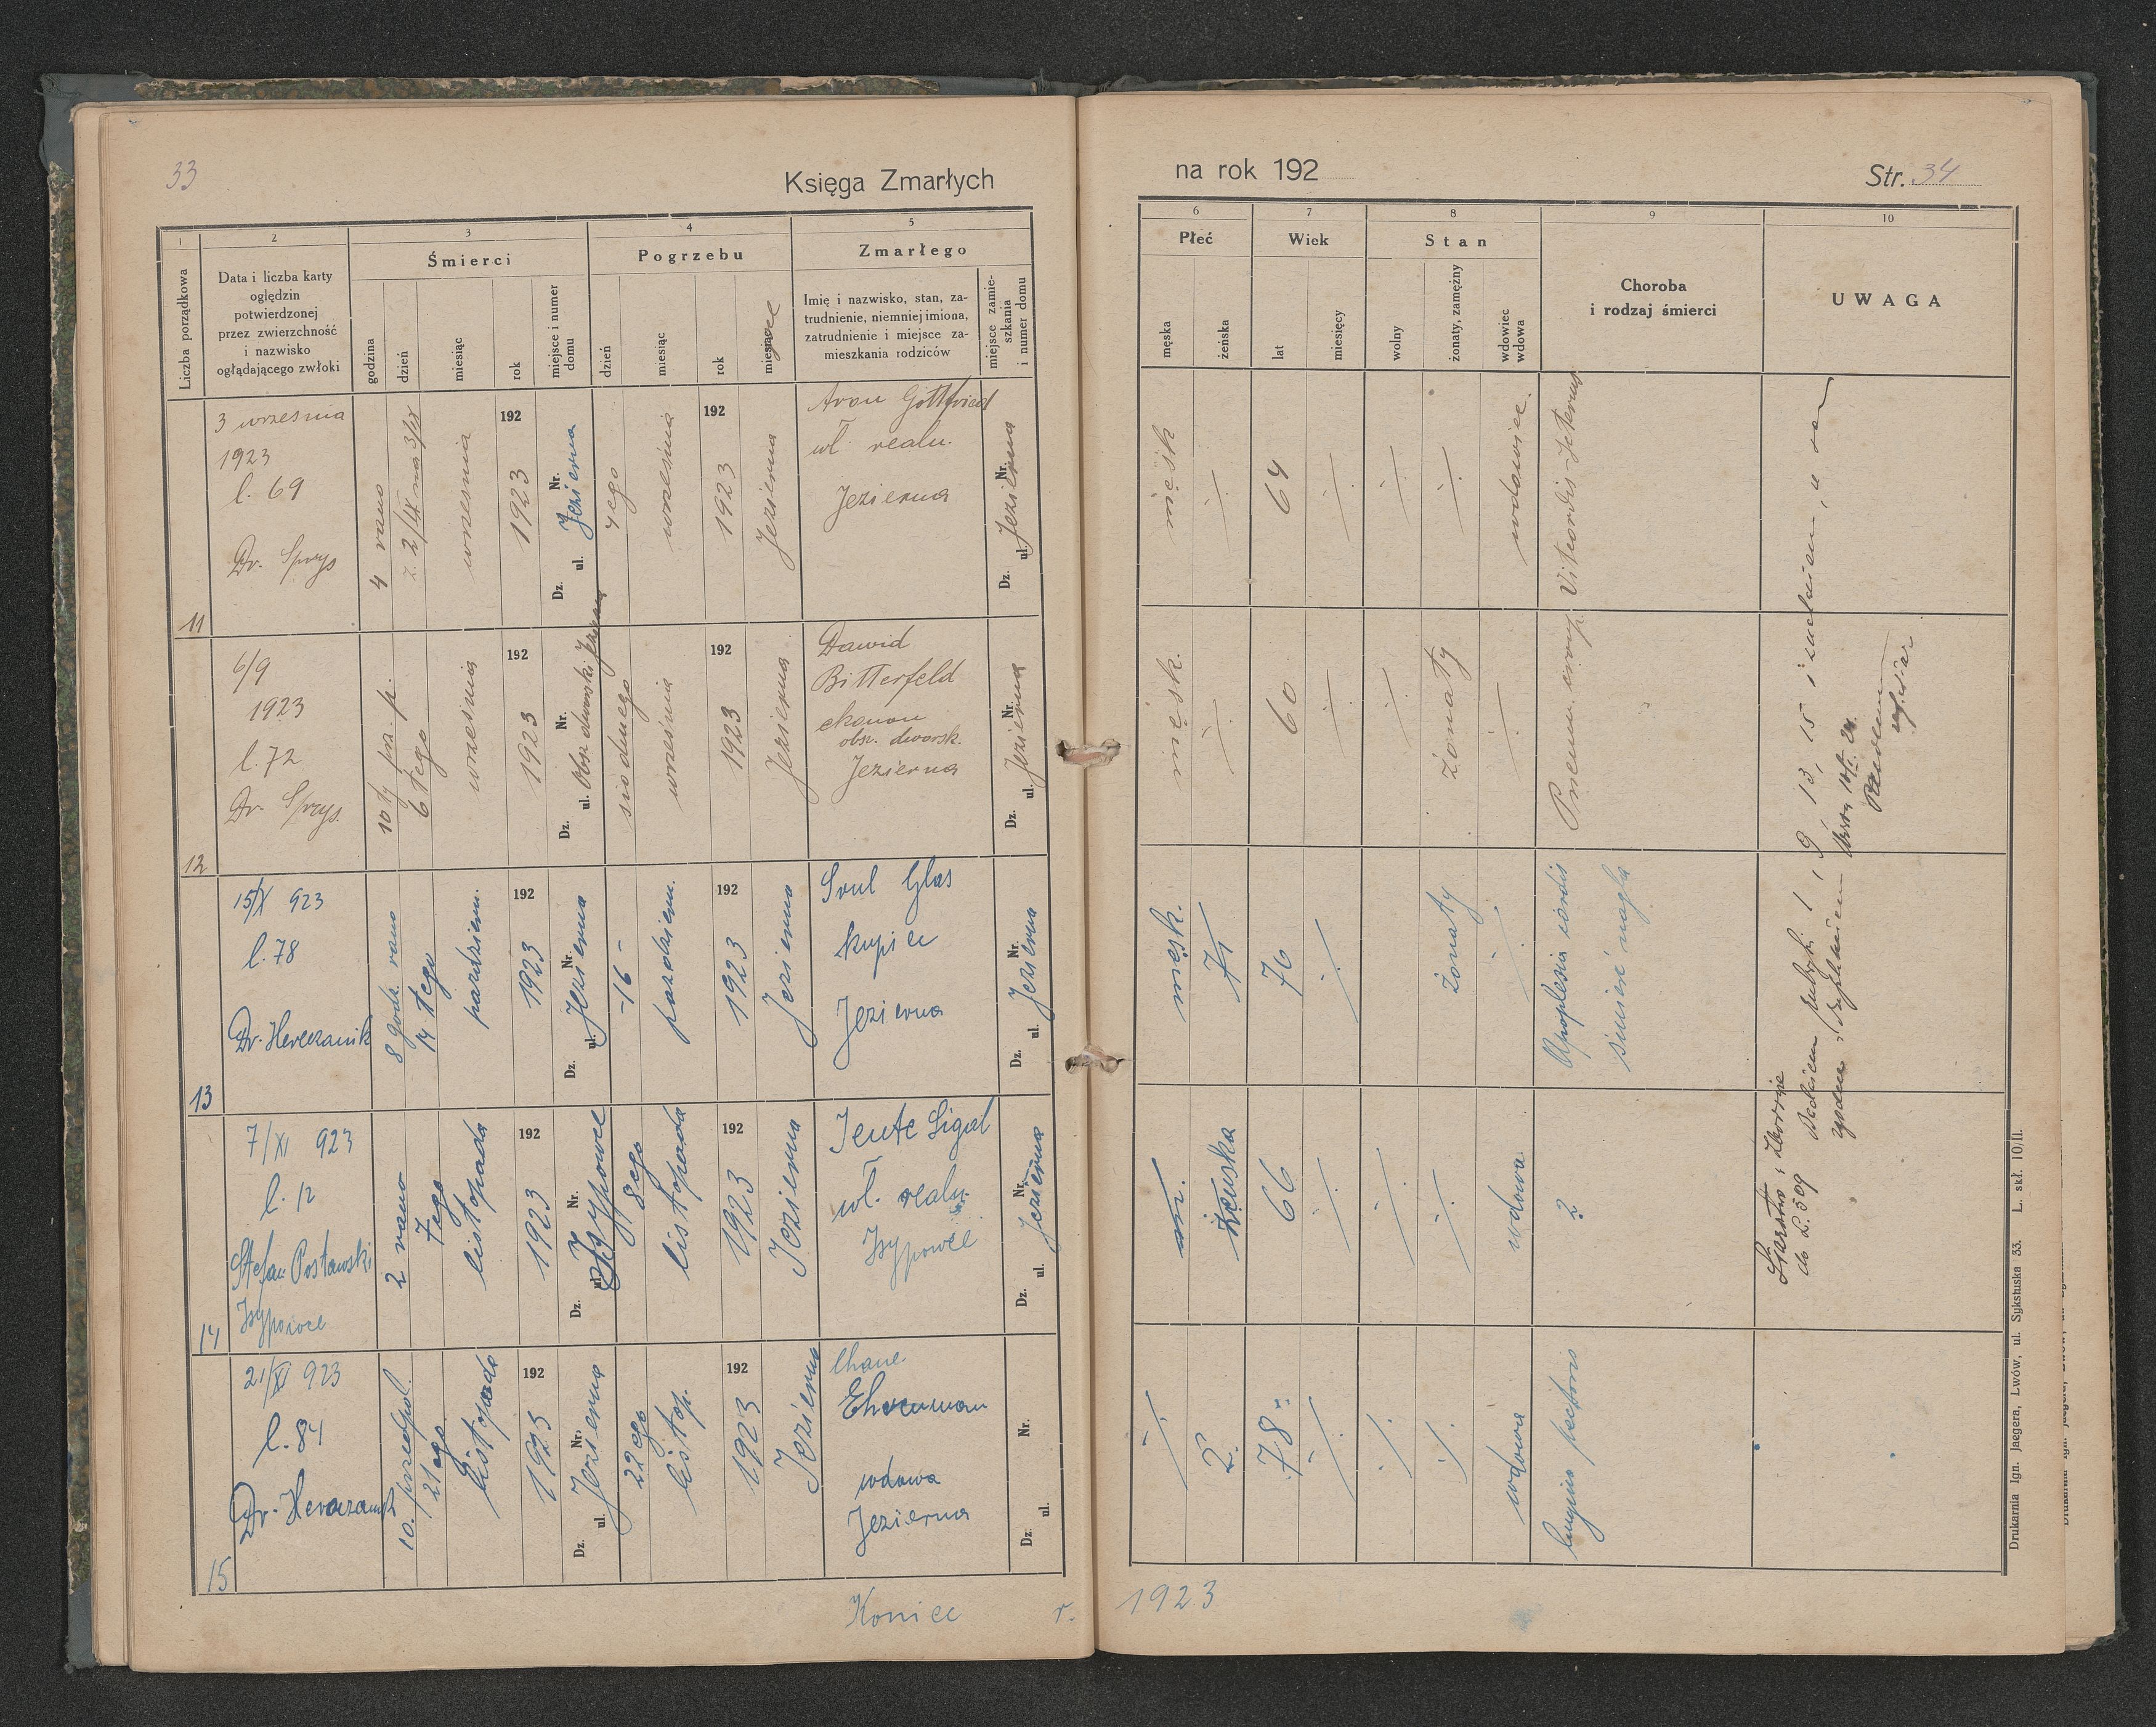 33
Księga Zmarłych
1
2
3
4
5
Liczba porządkowa
Data i liczba karty
oględzin
potwierdzonej
przez zwierzchność
i nazwisko
oglądającego zwłoki
Śmierci
godzina
dzień
miesiąc
rok
miejsce i numer
domu
Pogrzebu
dzień
miesiąc
rok
Zmarłego
Imię i nazwisko, stan, za-
trudnienie, niemniej imiona,
zatrudnienie i miejsce za-
mieszkania rodziców
miejsce zamie-
szkania
i numer domu
11
3 września
1923
l. 69
Dr. Sprys
4 rano
z 2/IX na 3/IX
września
192
1923
Dz. ul. Nr.
Jezierna
4ego
września
192
1923
Jezierna
Aron Gottfried
wł. realn.
Jezierna
Dz. ul. Nr.
Jezierna
12
6/9
1923
l. 72
Dr. Sprys.
10ty
6tego
września
192
1923
Dz. ul. Nr.
Obsz dworski Jezierna
siódmego
września
192
1923
Jezierna
Dawid
Bitterfeld
ekonom
obsz. dworsk.
Jezierna
Dz. ul. Nr.
Jezierna
13
15/X 923
l. 78
8 godz. rano
14tego
październ.
192
1923
Dz. ul. Nr.
Jezierna
-16-
październ.
192
1923
Jezierna
Srul Glas
kupiec
Jezierna
Dz. ul. Nr.
Jezierna
14
7/XI 923
l. 12
Stefan Postawski
Isypowce
2 rano
7ego
listopada
192
1923
Dz. ul. Nr.
Isypowce
8ego
listopada
192
1923
Jezierna
Jente Sigal
wł. realn.
Isypowce
Dz. ul. Nr.
Jezierna
15
21/XI 923
l. 84
10. przedpoł.
21ego
listopada
192
1923
Dz. ul. Nr.
Jezierna
22ego
listop.
192
1923
Jezierna
Chane
Ehrenman
wdowa
Jezierna
Dz. ul. Nr.
Koniec r.
na rok 192
Str. 34
6
7
8
9
10
Płeć
męska
żeńska
Wiek
lat
miesięcy
Stan
wolny
żonaty, zamężny
wdowiec
wdowa
Choroba
i rodzaj śmierci
UWAGA
męsk
64
wdowiec.
męsk.
60
żonaty
męsk.
76
żonaty
Apoplesia cordis
śmierć nagła
żeńska
66
wdowa
?
Starostwo, Zborów
do L. 509
78
wdowa
pectoris
1923
Drukarnia Ign. Jaegera, Lwów, ul. Sykstuska 33. L. skł. 10/II.